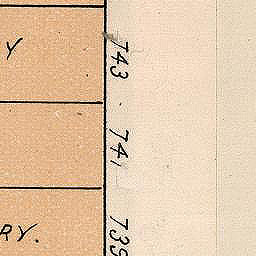 Y
743
741
RY.
739